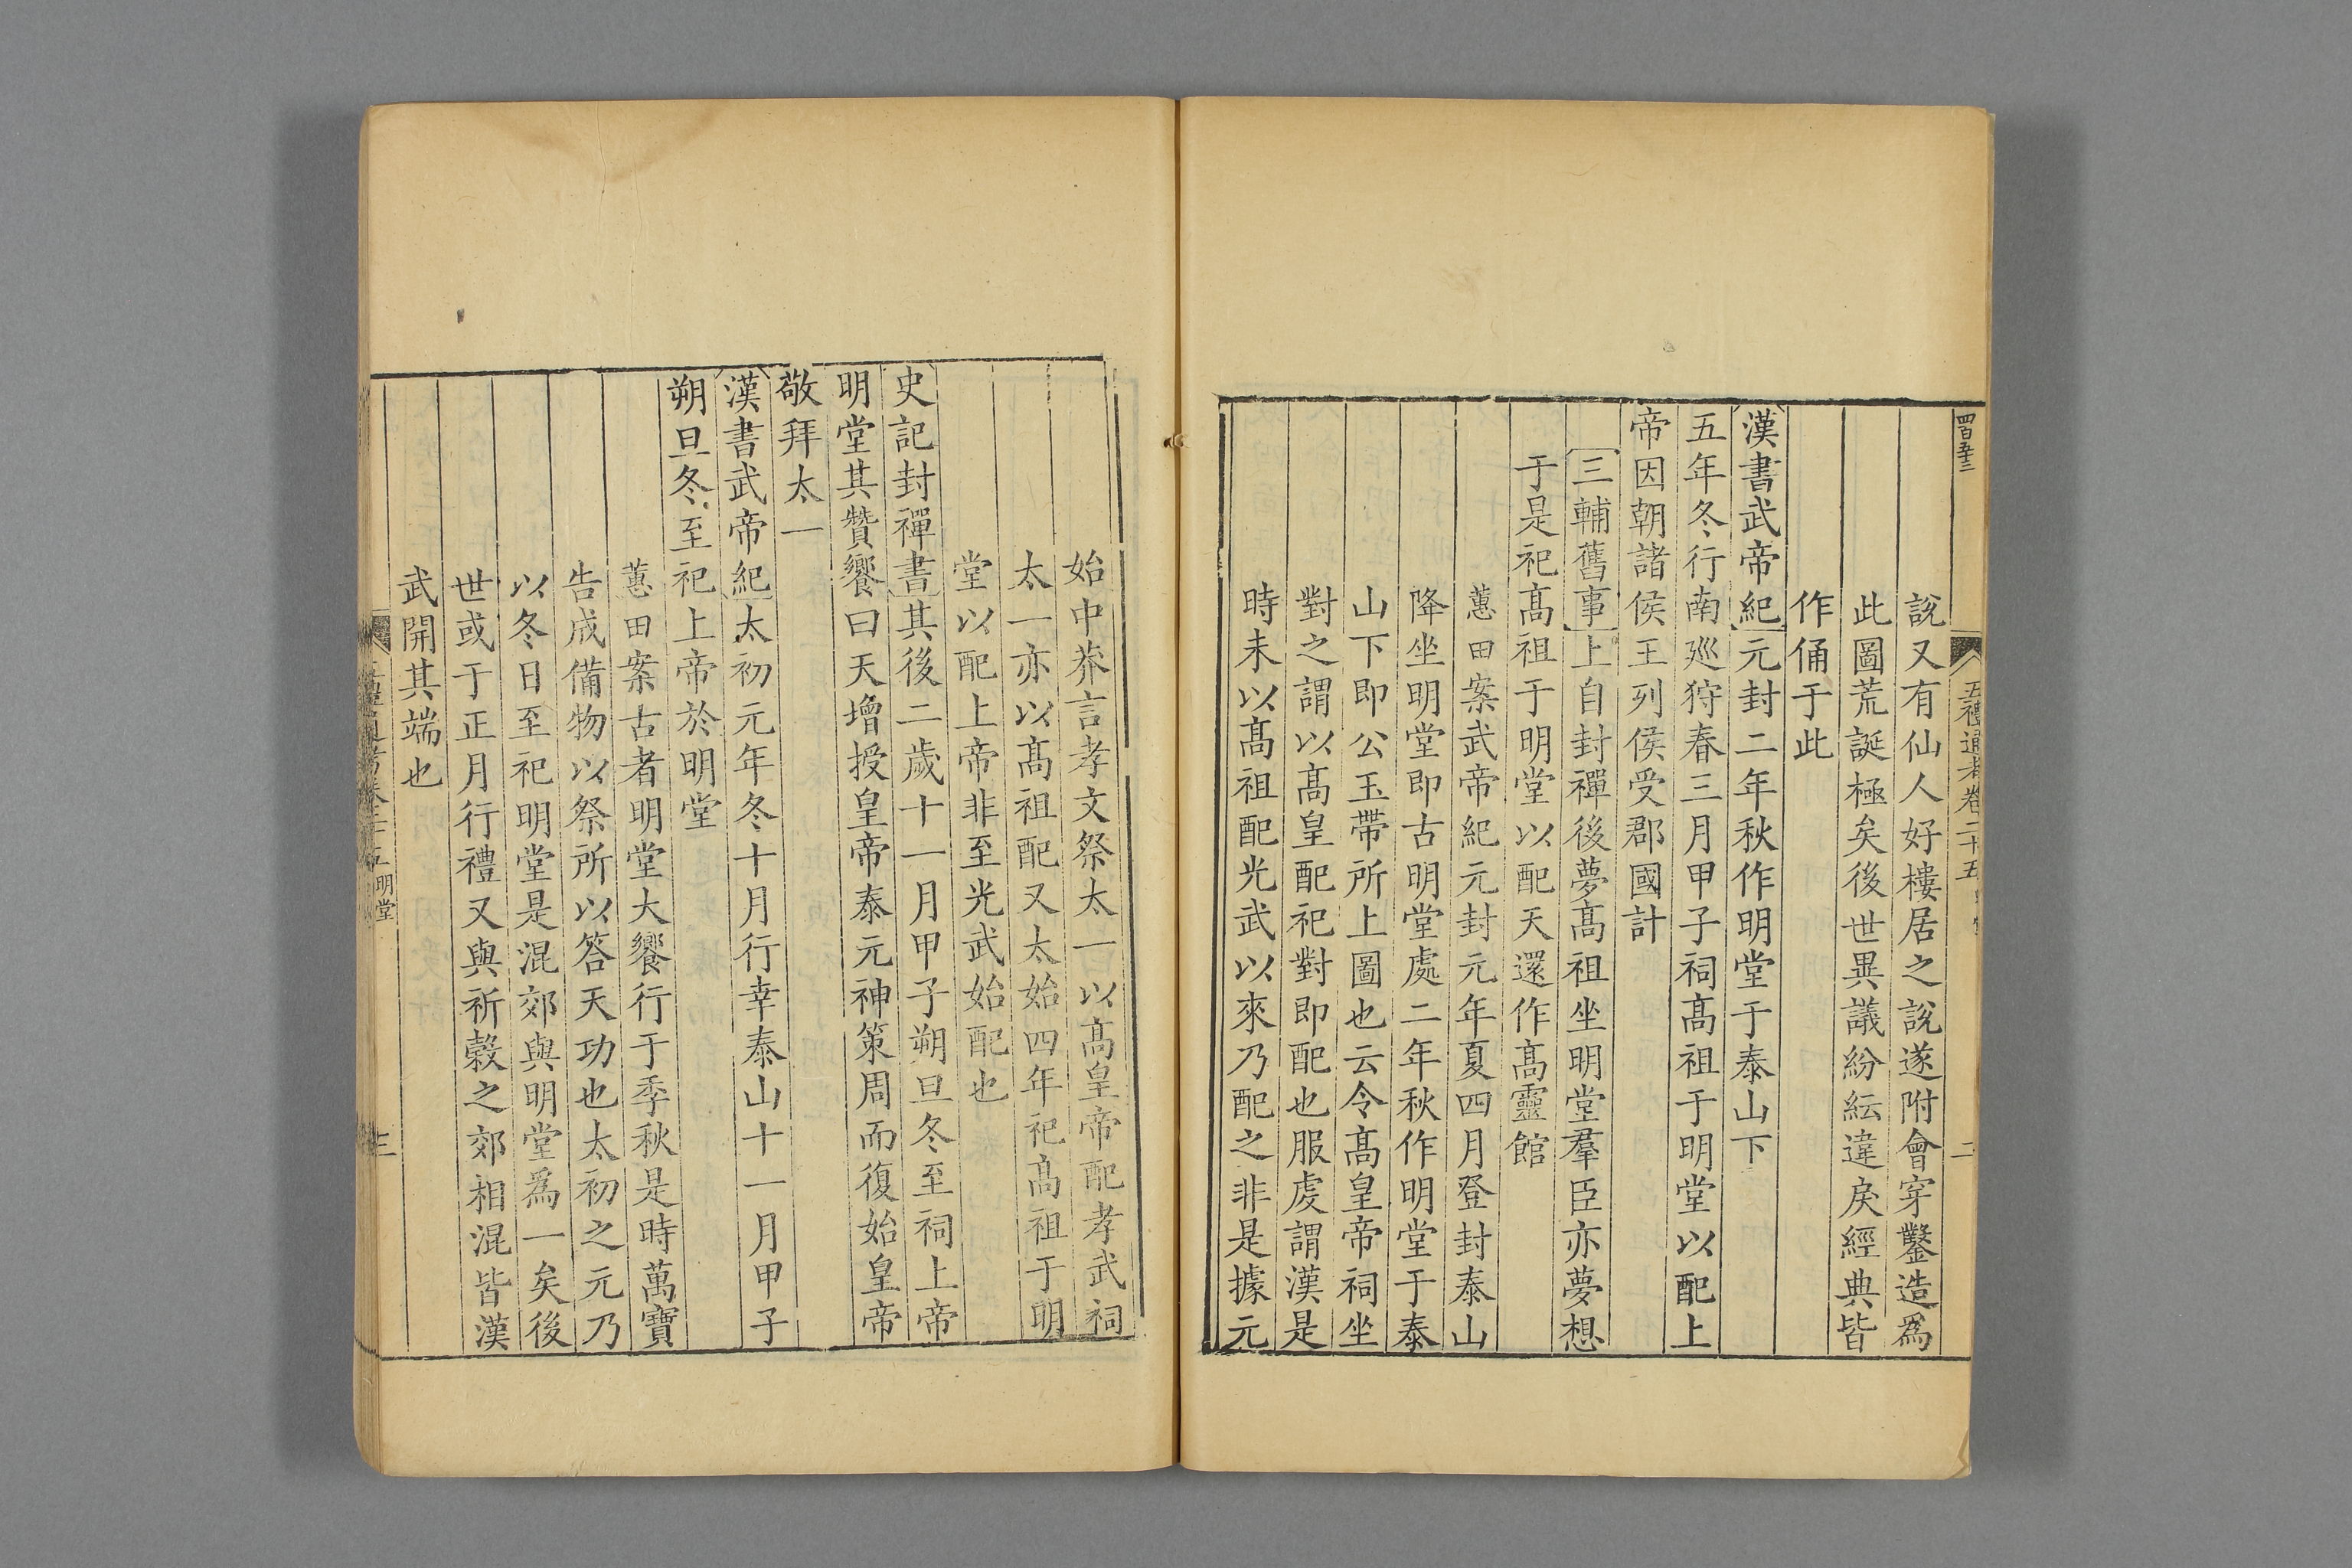 四百五十三
五禮通考卷二十五
二
說又有仙人好樓居之說遂附會穿鑿造爲
此圖荒誕極矣後世異議紛紜違戾經典皆
作俑于此
漢書武帝紀元封二年秋作明堂于泰山下
五年冬行南廵狩春三月甲子祠髙祖于明堂以配上
帝因朝諸侯王列侯受郡國計
三輔舊事上自封禪後夢髙祖坐明堂羣臣亦夢想
于是祀髙祖于明堂以配天還作髙靈館
蕙田案武帝紀元封元年夏四月登封泰山
降坐明堂即古明堂處二年秋作明堂于泰
山下即公玉帶所上圖也云令髙皇帝祠坐
對之謂以髙皇配祀對即配也服虔謂漢是
時未以髙祖配光武以來乃配之非是據元
始中莽言孝文祭太一以髙皇帝配孝武祠
太一亦以髙祖配又太始四年祀髙祖于明
堂以配上帝非至光武始配也
史記封禪書其後二歲十一月甲子朔旦冬至祠上帝
明堂其贊饗曰天增授皇帝泰元神策周而復始皇帝
敬拜太一
漢書武帝紀太初元年冬十月行幸泰山十一月甲子
朔旦冬至祀上帝於明堂
蕙田案古者明堂大饗行于季秋是時萬寶
告成備物以祭所以答天功也太初之元乃
以冬日至祀明堂是混郊與明堂爲一矣後
世或于正月行禮又與祈糓之郊相混皆漢
武開其端也
五禮通考卷二十五
明堂
三